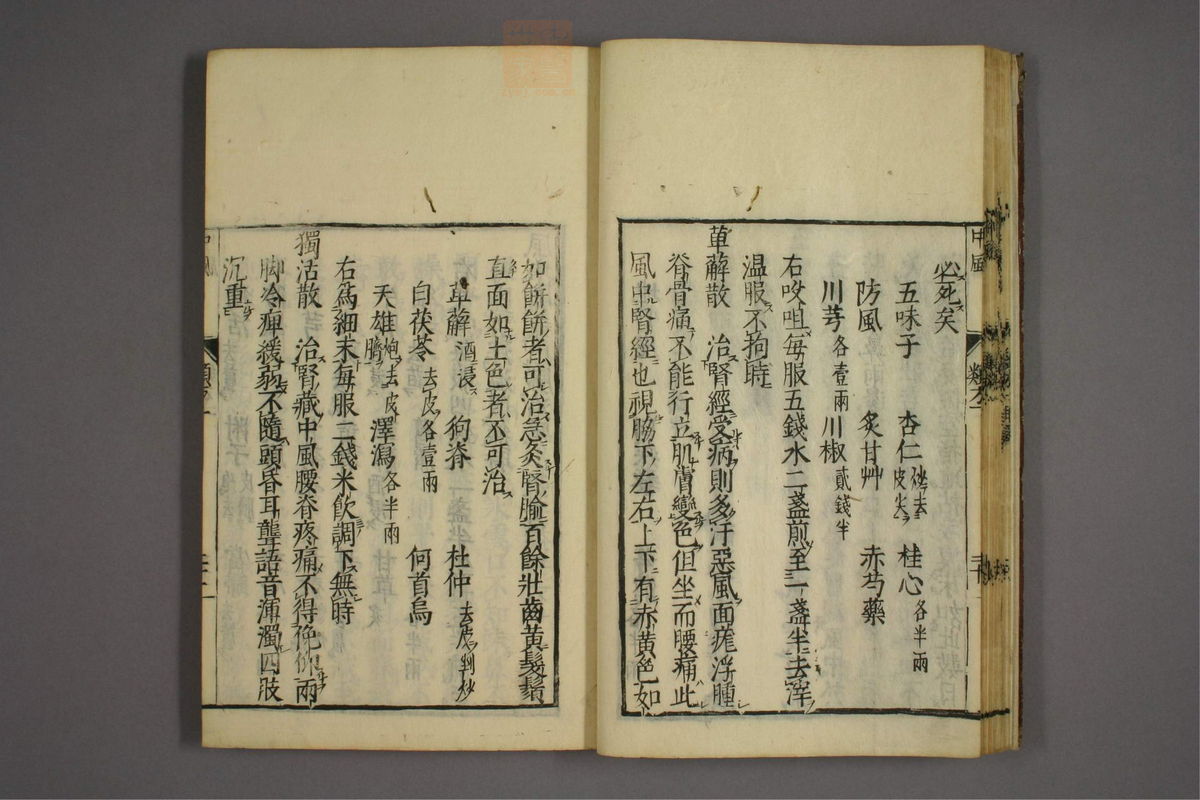 中風
必死矣
五味子 杏仁 炒去皮尖 桂心 各半兩
防風 炙甘艸 赤芍藥
川芎 各壹兩 川椒 貳錢半
右㕮咀每服五錢水二盞煎至一盞半去滓
温服不拘時
萆薢散 治腎經受病則多汗惡風面痝浮腫
脊骨痛不能行立肌膚變色但坐而腰痛此
風中腎經也視脇下左右上下有赤黄色如
如餅餅者可治急灸腎腧百餘壯齒黄髮鬚
直面如土色者不可治
萆薢 酒浸 狗脊 杜仲 去皮剉炒
白茯苓 去皮各壹兩 何首烏
天雄 炮去皮臍 澤瀉 各半兩
右爲細末每服二錢米飲調下無時
獨活散 治腎臓中風腰脊疼痛不得俛仰兩
脚冷痺緩弱不隨頭昏耳聾語音渾濁四肢
沉重